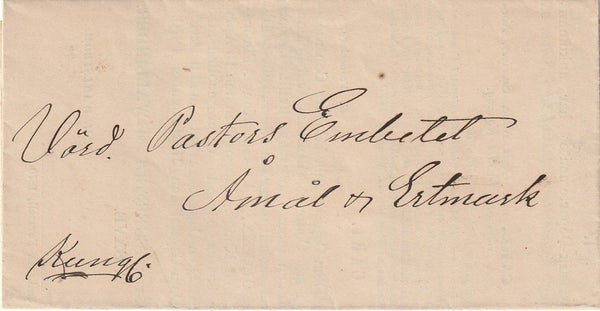 Vörd. Pastors Embetet
Åmål & Ertmark
Kungb.